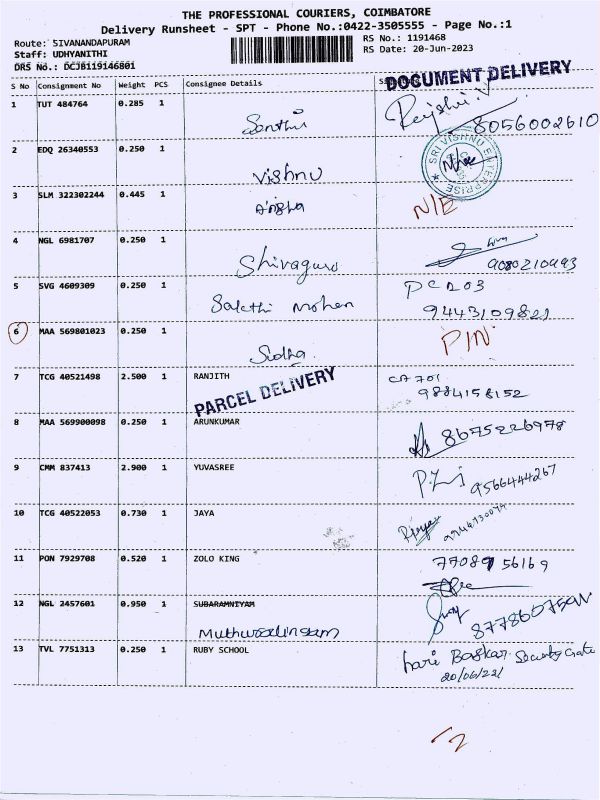 THE PROFESSIONAL COURIERS, COIMBATORE
Delivery Runsheet - SPT - Phone No.:0422-3505555 - Page No.:1
Route: SIVANANDAPURAM RS No.: 1191468
Staff: UDHYANITHI RS Date: 20-Jun-2023
DRS No.: DCJB119146801
DOCUMENT DELIVERY
S No Consignment No Weight PCS Consignee Details
1 TUT 484764 0.285 1 Senthil 8056002610
2 EDQ 26340553 0.250 1 Vishnu
SRI VISHNU ENTERPRISE
3 SLM 322302244 0.445 1 N/E
4 NGL 6981707 0.250 1 Shivaguru
5 SVG 4609309 0.250 1 Sakthi Mohan
6 MAA 569801023 0.250 1 Sudha PIN
7 TCG 40521498 2.500 1 RANJITH CA 701
9884158152
PARCEL DELIVERY
8 MAA 569900098 0.250 1 ARUNKUMAR 8675226978
9 CMM 837413 2.900 1 YUVASREE 9566444267
10 TCG 40522053 0.730 1 JAYA
11 PON 7929708 0.520 1 ZOLO KING
12 NGL 2457601 0.950 1 SUBARAMNIYAM
13 TVL 7751313 0.250 1 RUBY SCHOOL Hari Baskar Security Gate